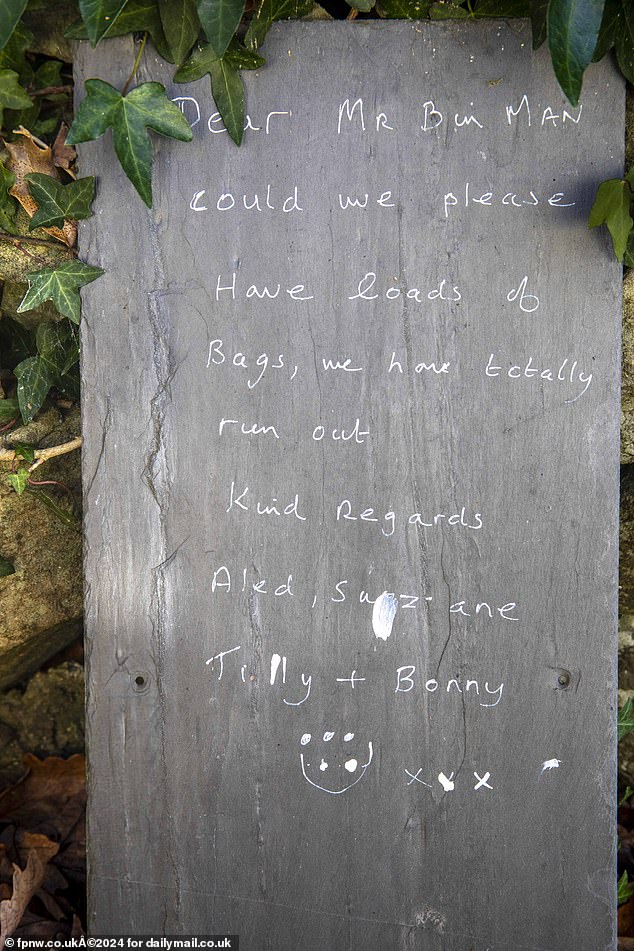 Dear MR Bin MAN
could we please
Have loads of
Bags, we have totally
run out
Kind Regards
Aled, Suzz-ane
Tilly + Bonny
x x x
© fpnw.co.ukÂ©2024 for dailymail.co.uk